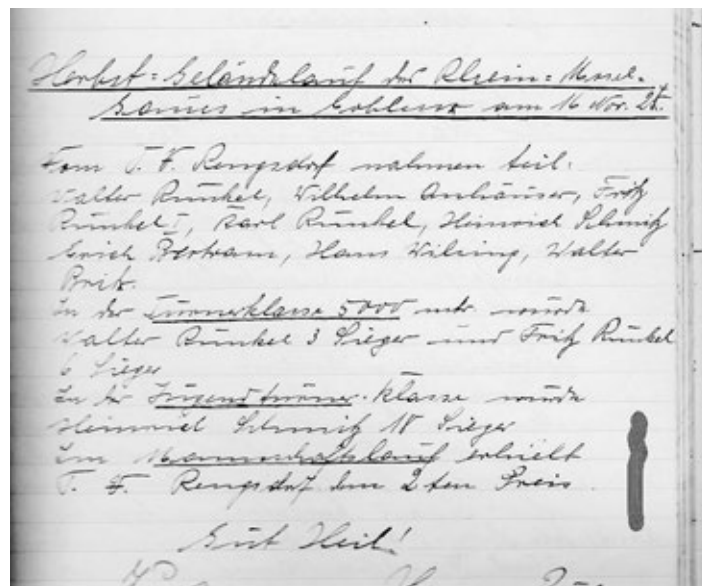 Herbst=Geländelauf des Rhein=Mosel-
Gaues in Coblenz am 16 Nov.
Vom T. V. Rengsdorf nahmen teil:
Walter Runkel, Wilhelm Anhäuser, Fritz
Runkel I, Karl Runkel, Heinrich Schmitz
Erich Bertram, Hans Wilsing, Walter
Britz.
In der Turnerklasse 5000 mtr. wurde
Walter Runkel 3 Sieger und Fritz Runkel
6 Sieger
In der Jugendturner-klasse wurde
Heinrich Schmitz 18 Sieger
Im Mannschaftslauf erhielt
T. V. Rengsdorf den 2ten Preis.
Gut Heil!